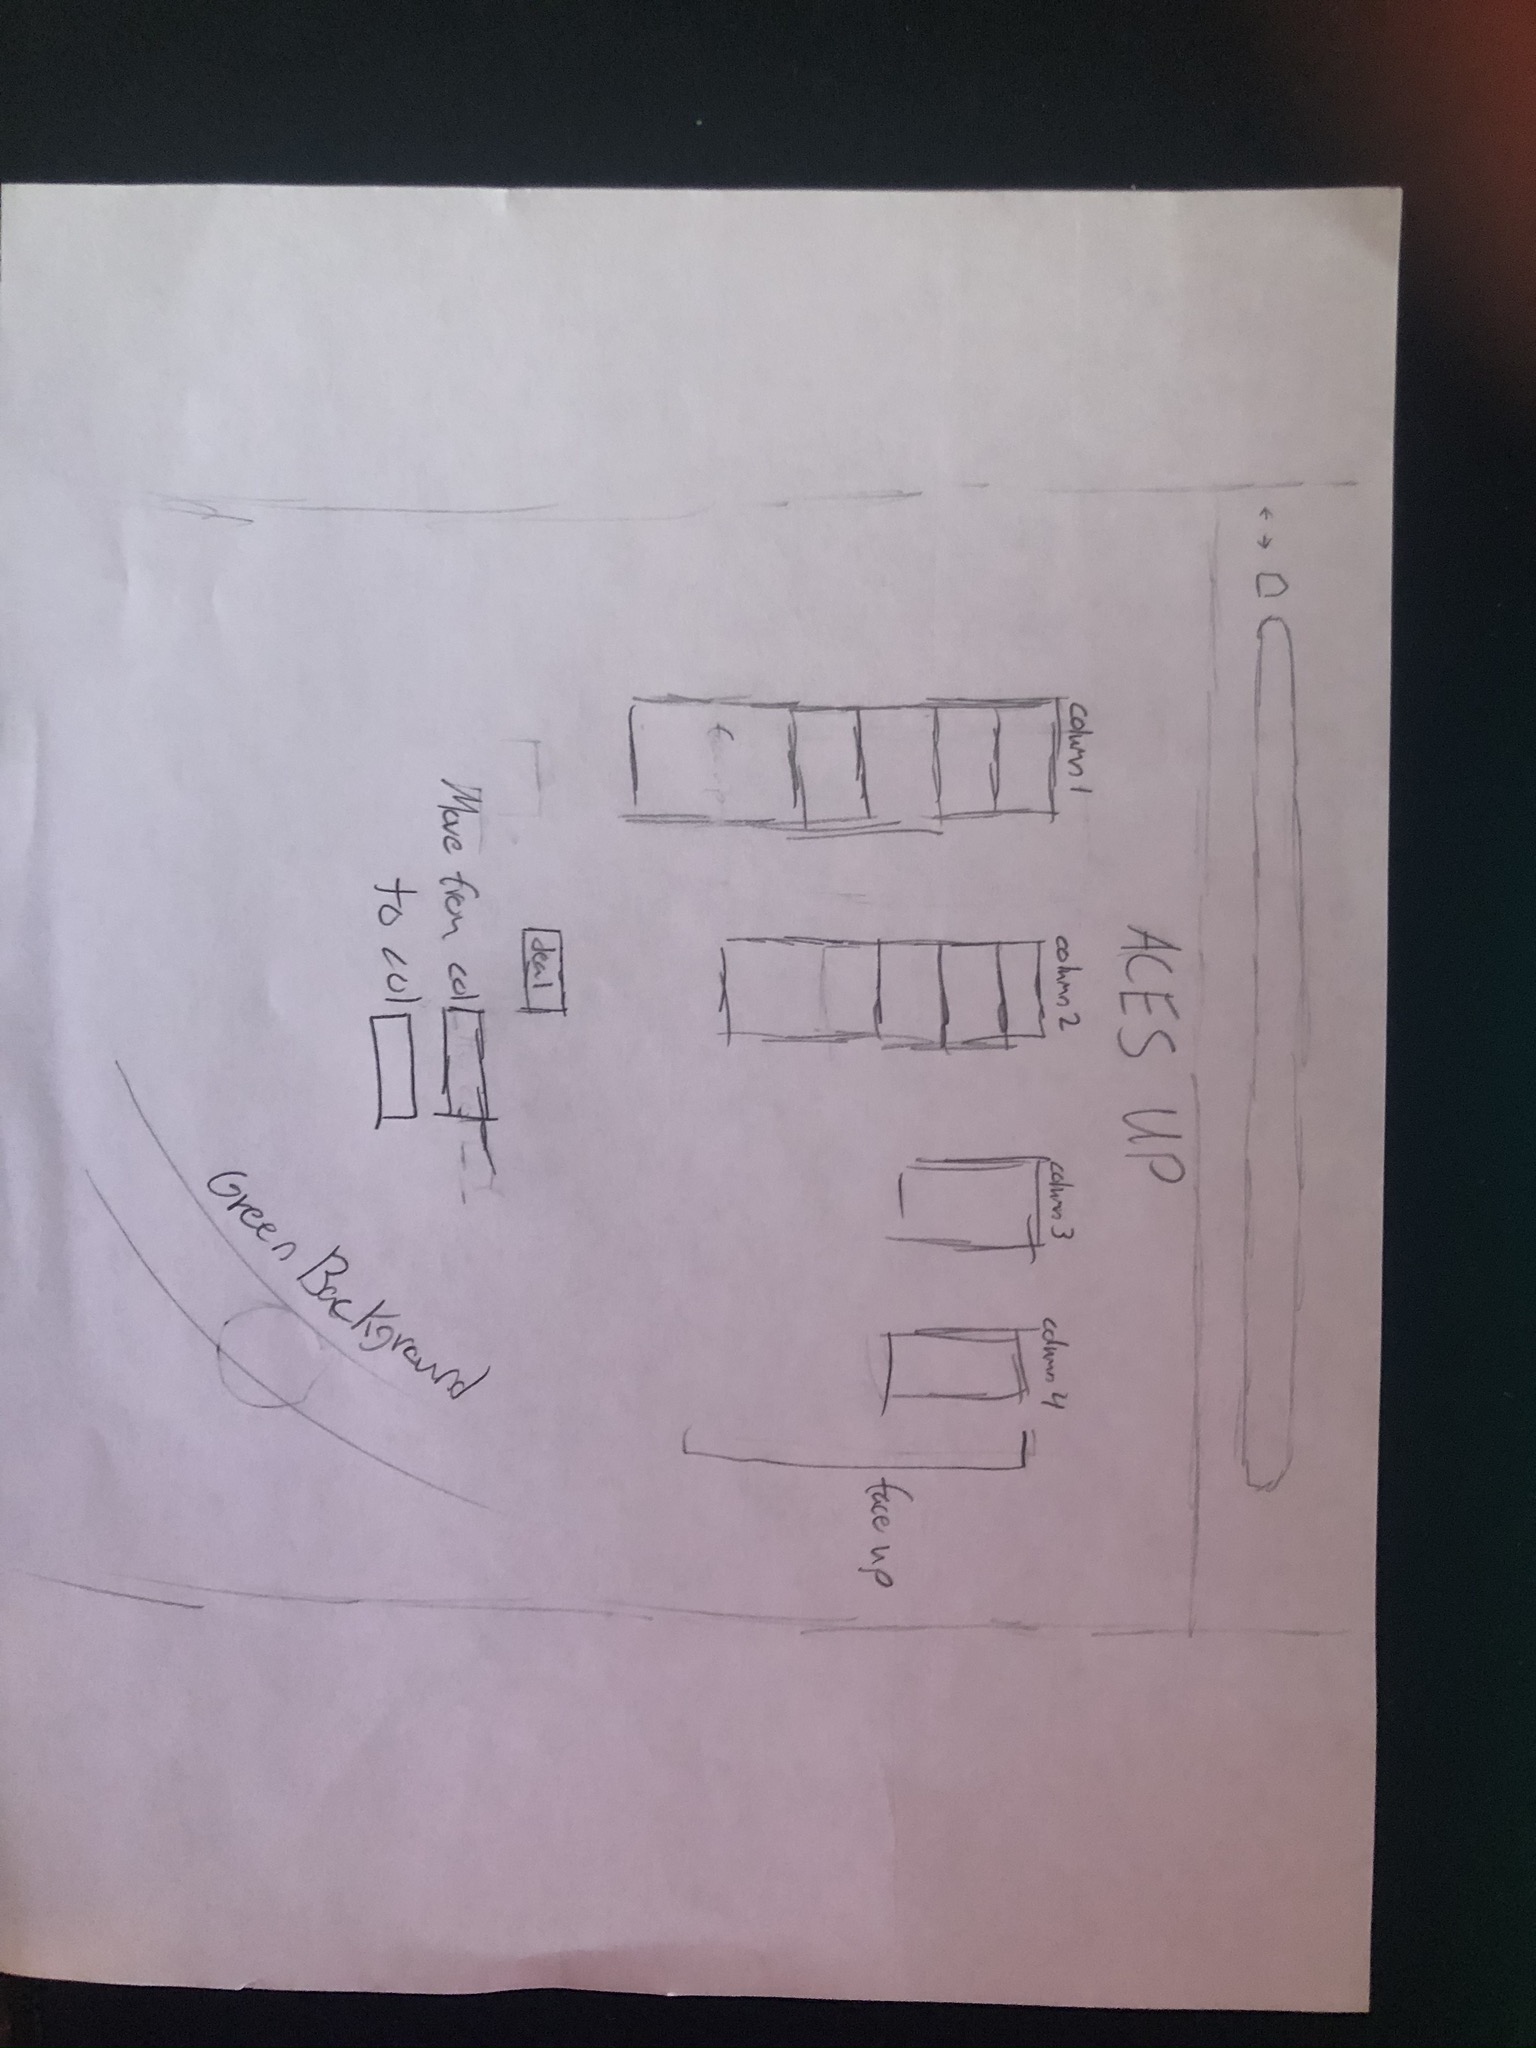 ACES UP
column 1
column 2
column 3
column 4
face up
deal
Move from col
to col
Green Background